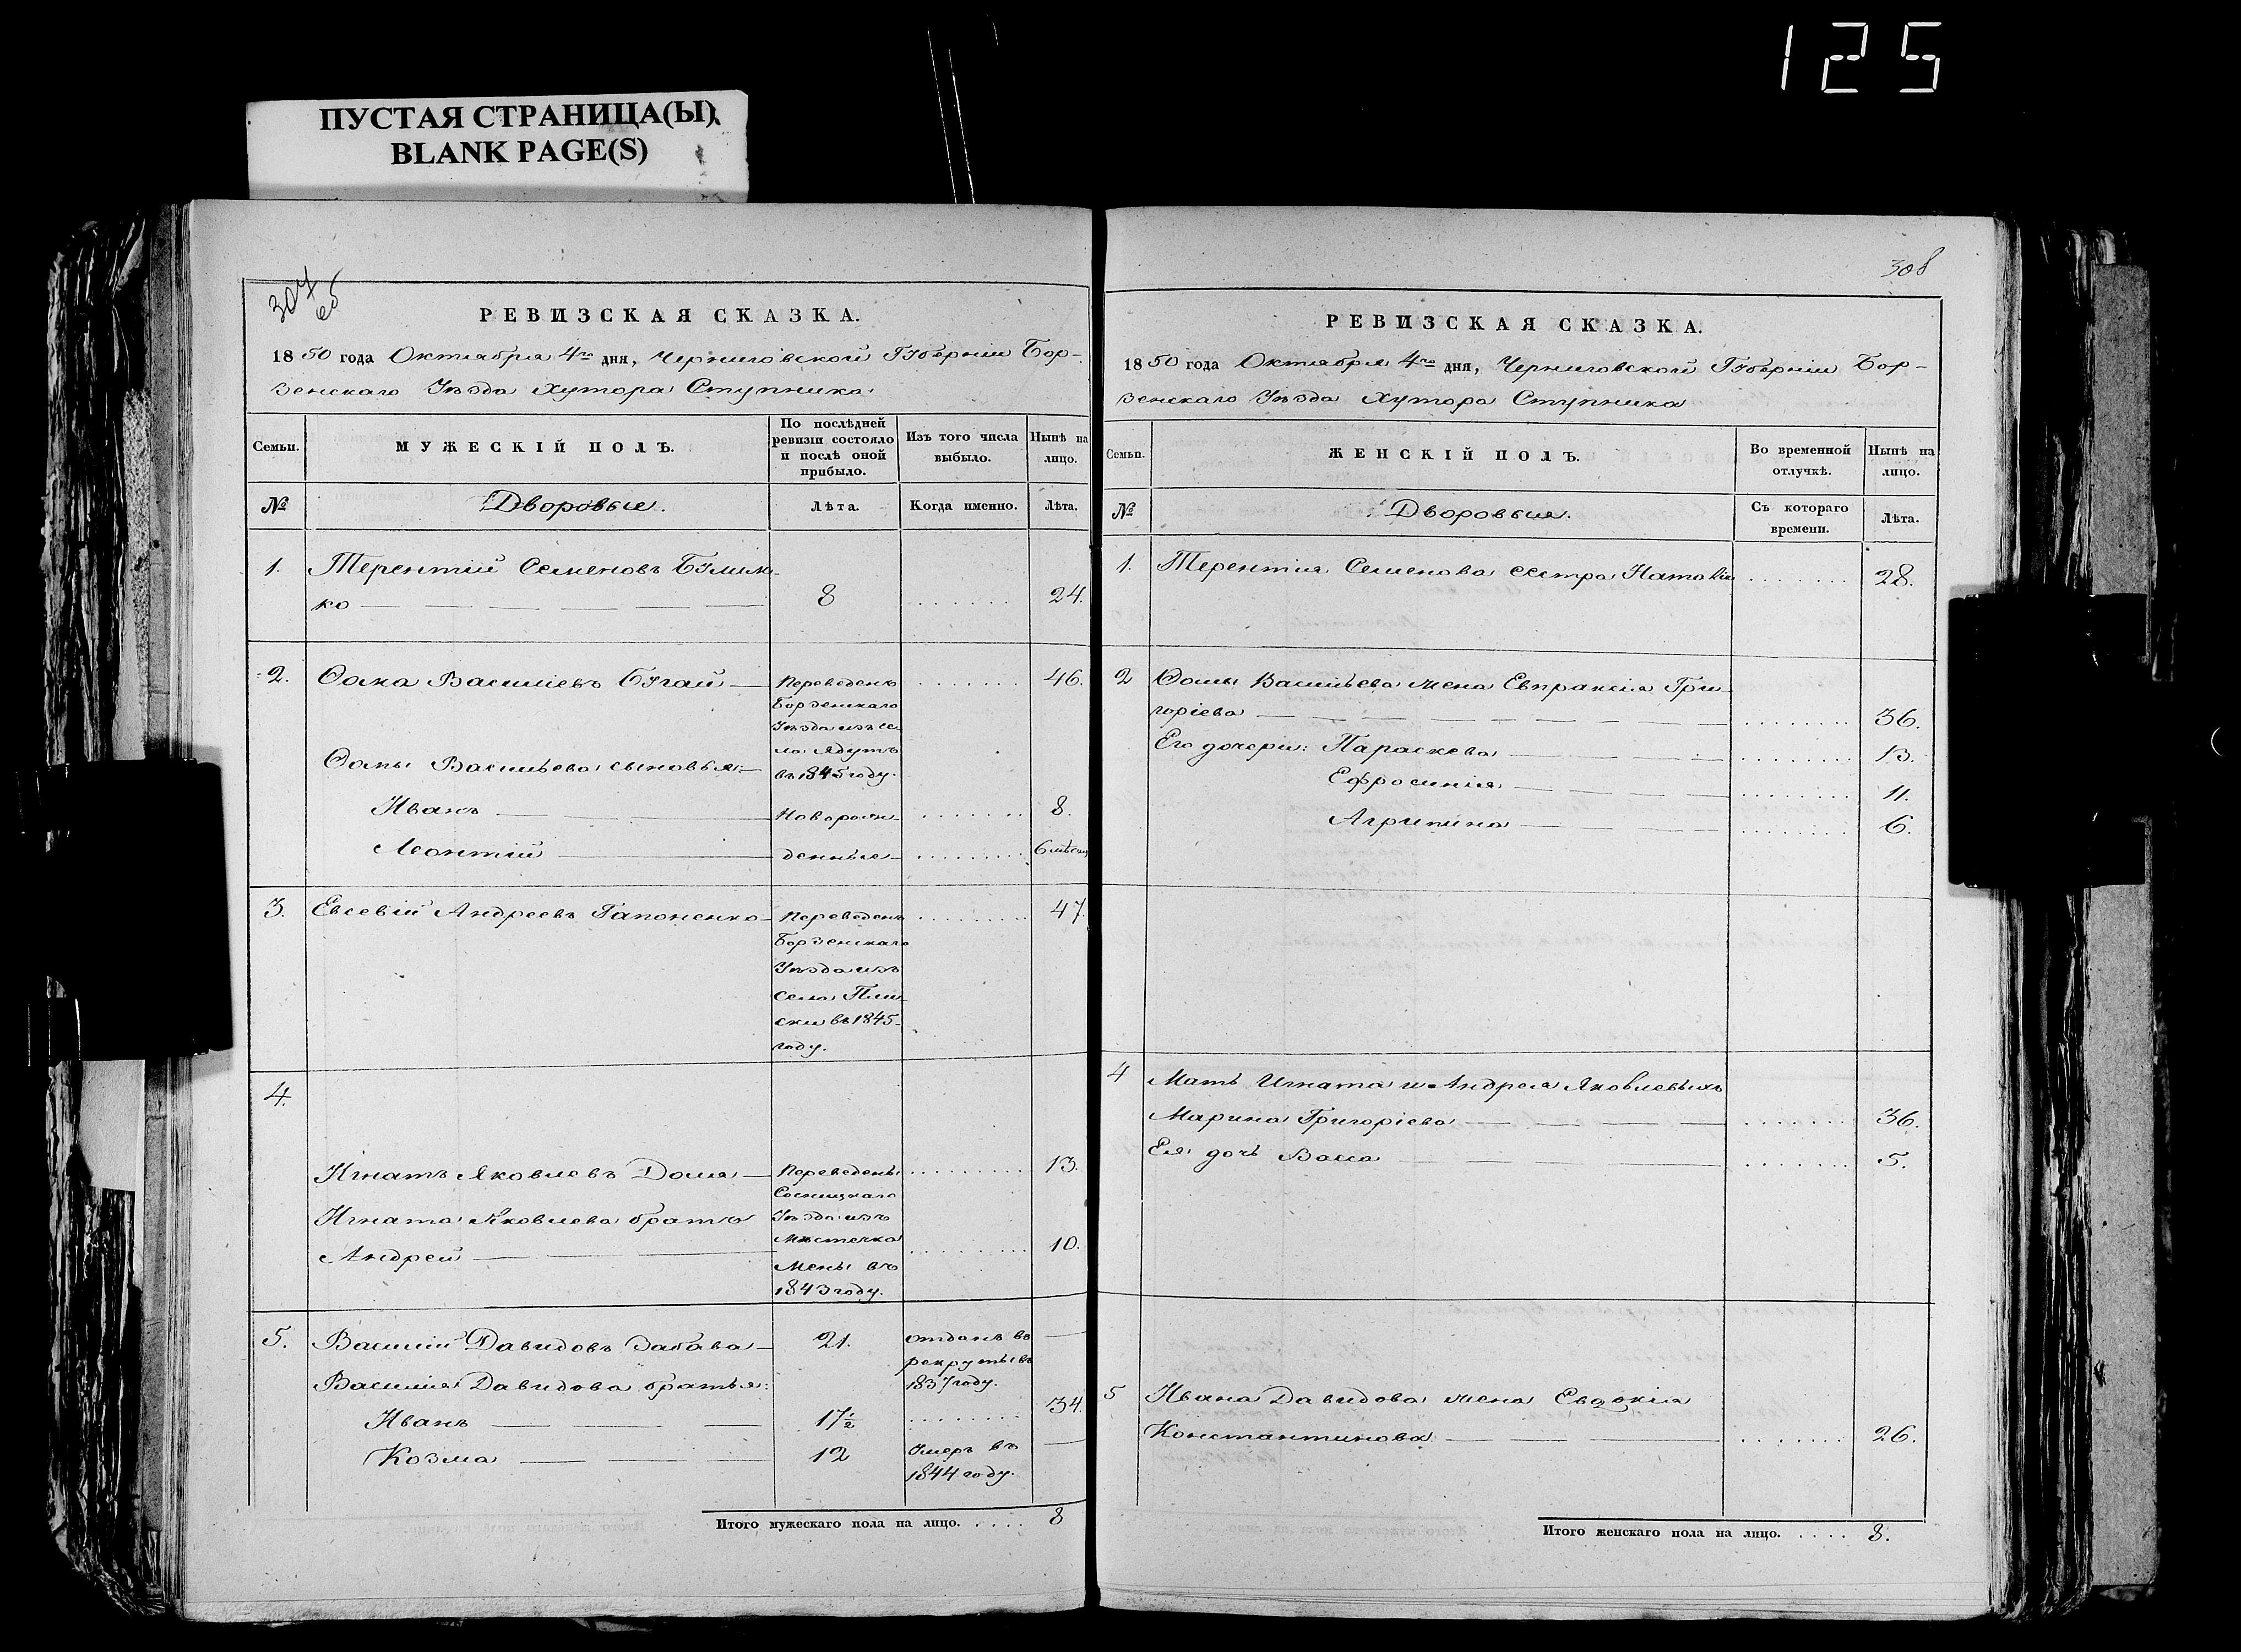 125
ПУСТАЯ СТРАНИЦА(Ы)
BLANK PAGE(S)
307
об
РЕВИЗСКАЯ СКАЗКА.
1850 года Октября 4го дня, Черниговской Губерніи Бор-
зенскаго Уѣзда Хутора Ступника
Семьи.
МУЖЕСКІЙ ПОЛЪ.
По послѣдней ревизіи состояло и послѣ оной прибыло.
Изъ того числа выбыло.
Нынѣ на лицо.
№
Дворовые.
Лѣта.
Когда именно.
Лѣта.
1. Терентій Семеновъ
ко — 8 ....... 24.
2. Ѳома Василіевъ Бугай — Переведенъ ....... 46.
Борзенскаго
Уѣзда изъ се
ла Ядутъ
Ѳомы Васильева сыновья: — въ 1845 году.
Иванъ — Новорож- ....... 8.
Леонтій — денные — ....... 6 мѣсяц
3. Евсевій Андреевъ Гапоненко — Переведенъ ....... 47.
Борзенскаго
Уѣзда изъ
села Пли-
ски въ 1845
году.
4.
Игнатъ Яковлевъ Доля — Переведены ....... 13.
Сосницкаго
Игната Яковлева братъ Уѣзда изъ
Мѣстечка
Андрей — ....... 10.
Мены въ
1843 году.
5. Василій Давидовъ Забава — 21. отданъ въ —
рекруты въ
Василія Давидова братья: 1837 году.
Иванъ — 17½ ....... 34.
Козма — 12 Умеръ въ —
1844 году.
Итого мужескаго пола на лицо. .... 8
308
РЕВИЗСКАЯ СКАЗКА.
1850 года Октября 4го дня, Черниговской Губерніи Бор-
зенскаго Уѣзда Хутора Ступника
Семьи.
ЖЕНСКІЙ ПОЛЪ.
Во временной отлучкѣ.
Нынѣ на лицо.
№
Дворовыя.
Съ котораго времени.
Лѣта.
1. Терентія Семенова сестра Наталія ....... 28.
2 Ѳомы Васильева жена Евпраксія Гри-
горіева — ....... 36.
Его дочери: Параскева — ....... 13.
Ефросинія — ....... 11.
Агрипина — ....... 6.
4 Мать Игната и Андрея Яковлевыхъ
Марина Григоріева — ....... 36.
Ея дочь Васса — ....... 5.
5 Ивана Давидова жена Евдокія
Константинова — ....... 26.
Итого женскаго пола на лицо. .... 8.